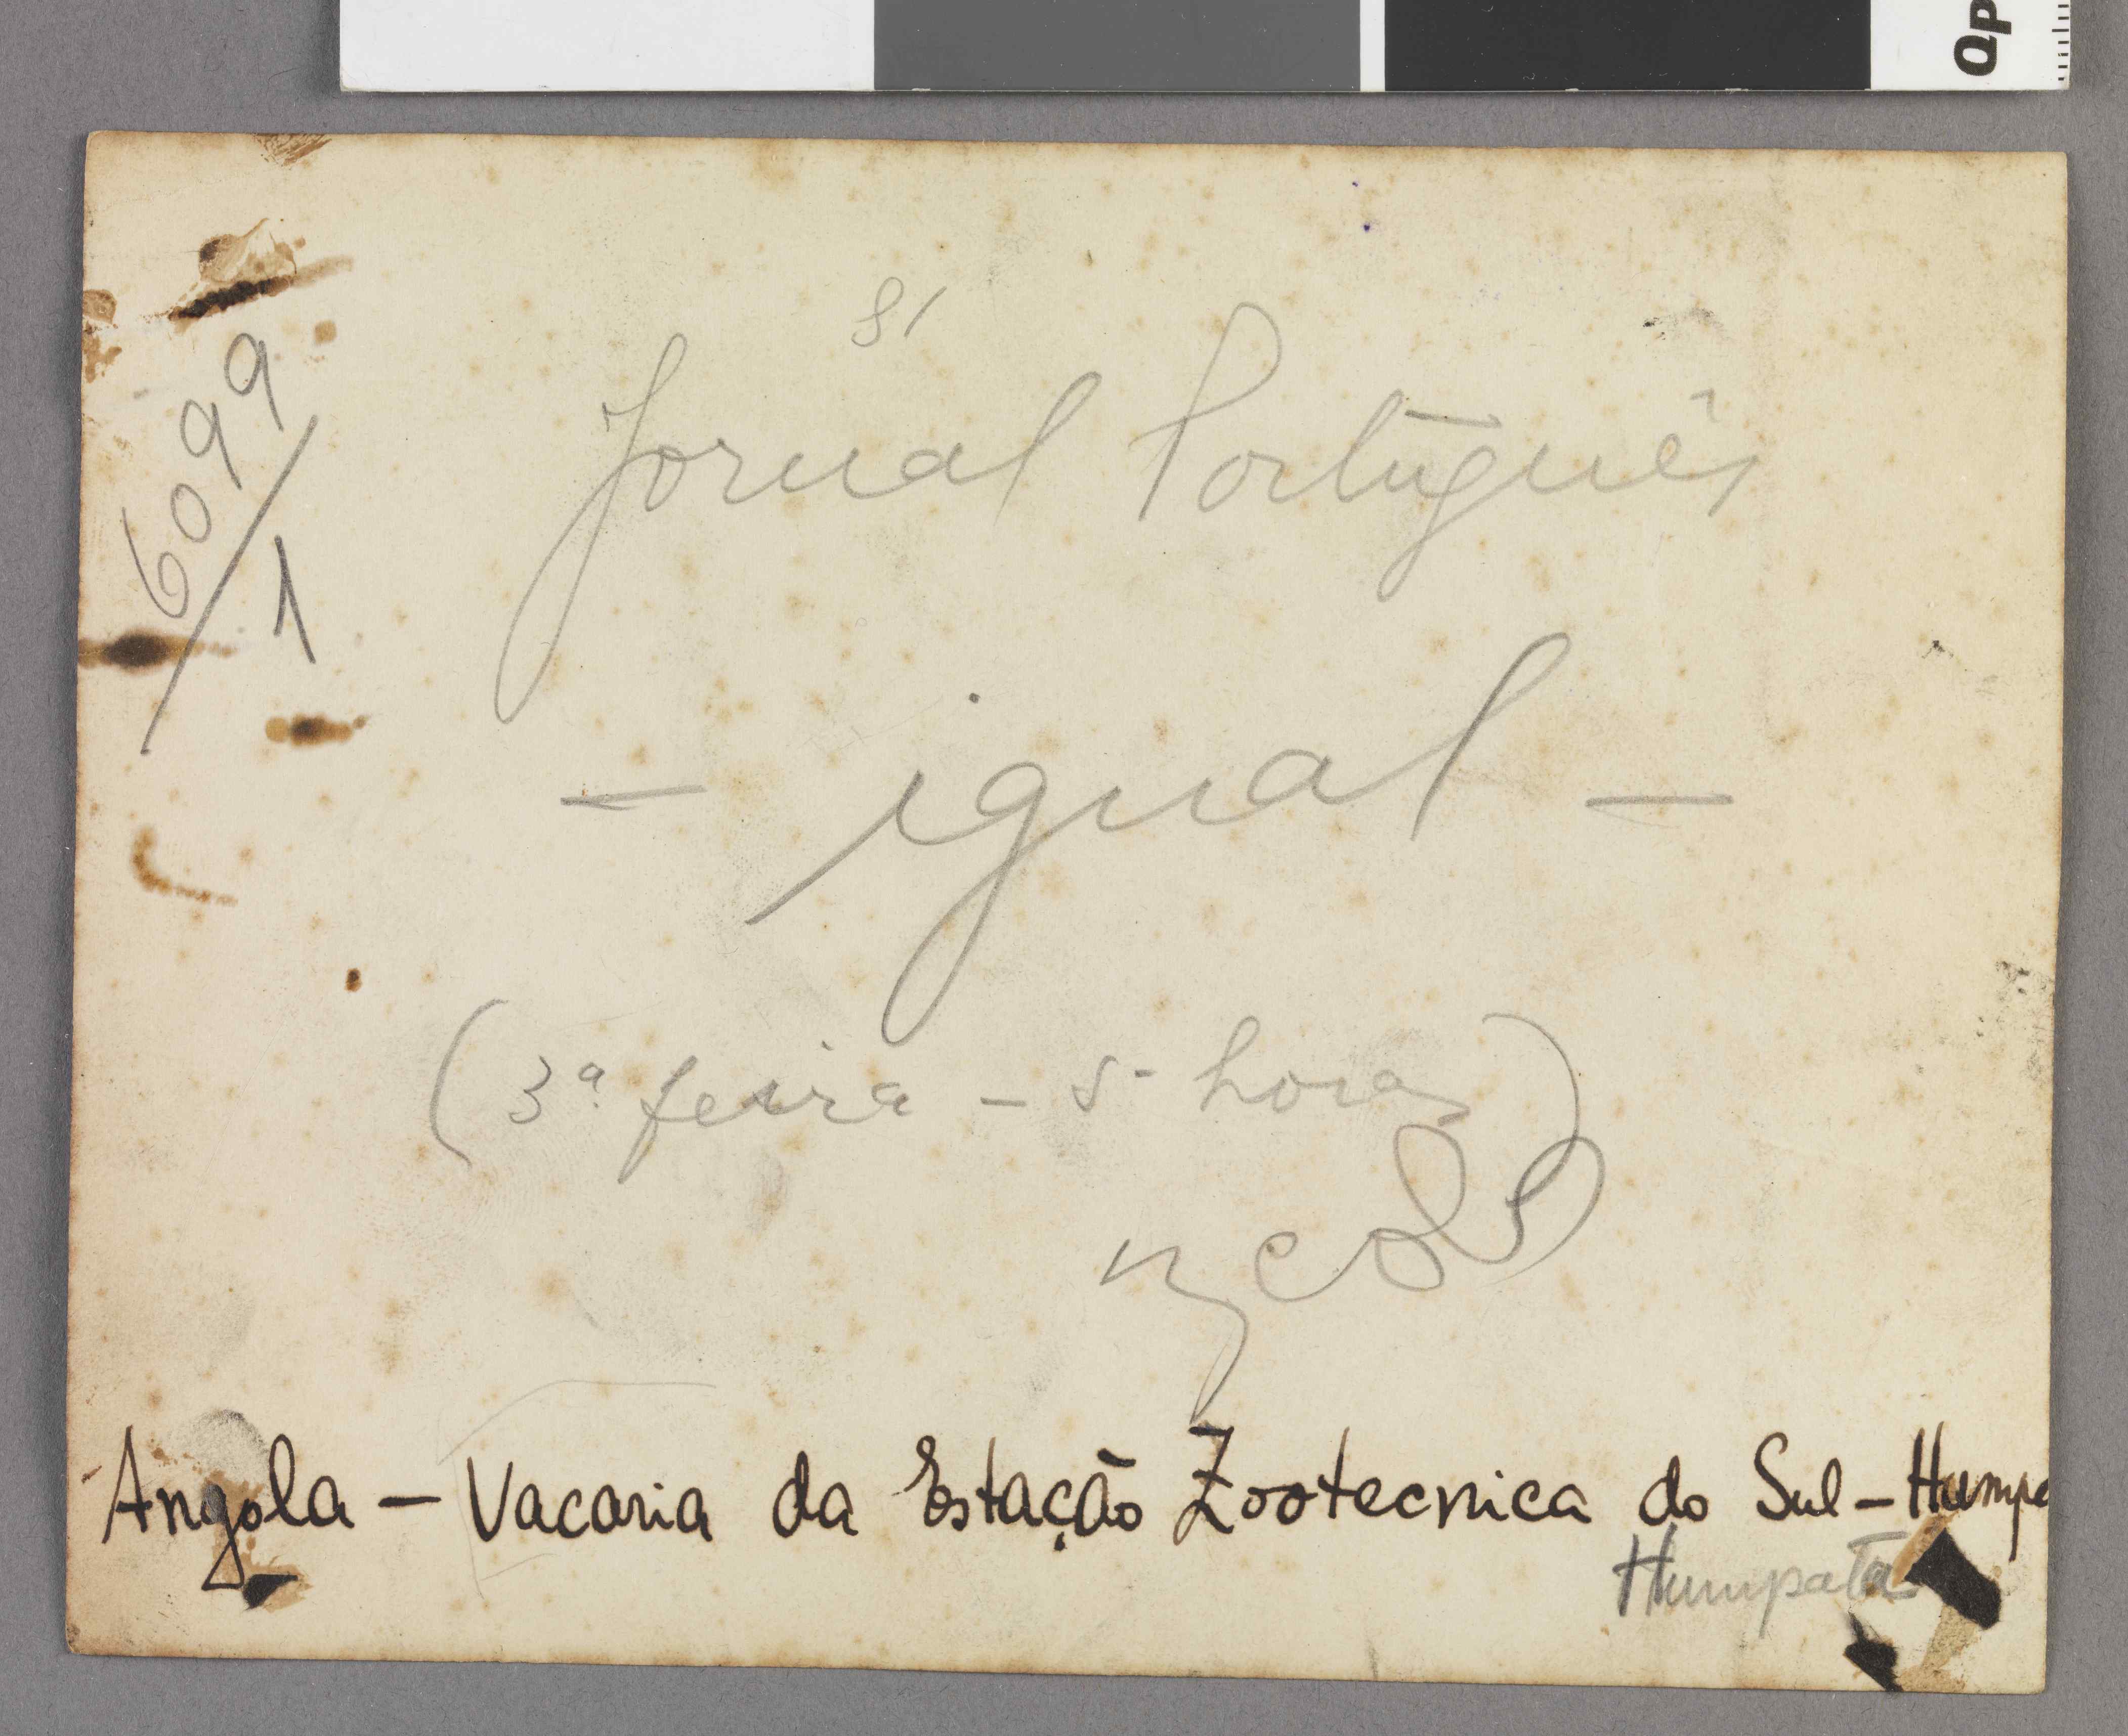 Qp
81
6099/1
Jornal Português
— igual —
(3ª feira – 5 horas)
Angola – Vacaria da Estação Zootecnica do Sul – Humpa
Humpata